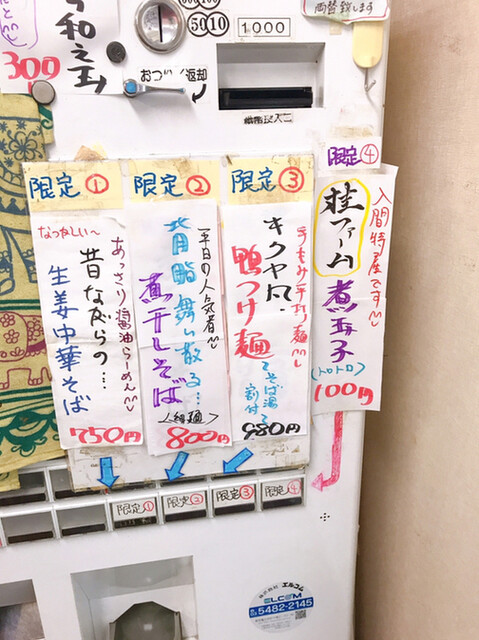 和之玉
300
両替致します
500 100
50 10
1000
おつり/返却
限定①
なつかしい〜
あっさり醤油らーめん
昔ながらの…
生姜中華そば
750円
限定②
平日の人気者
背脂舞い散る…
煮干しそば
<細麺>
800円
限定③
手もみ平打ち麺
キクヤ瓦
鴨つけ麺
そば湯割付
980円
限定④
入間特産です
桂ファーム
煮玉子
(トロトロ)
100円
限定①
限定②
限定③
限定④
株式会社 エルコム
ELCOM
03 5482-2145